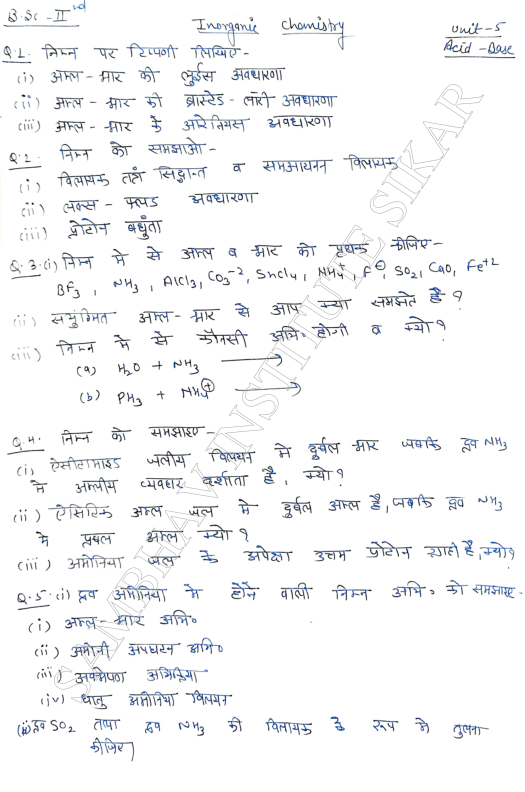 B.Sc-II nd
Inorganic Chemistry
Unit-5
Acid-Base
Q.1. निम्न पर टिप्पणी लिखिए -
(i) अम्ल-भार की लुईस अवधारणा
(ii) अम्ल-भार की ब्रास्टेड-लॉरी अवधारणा
(iii) अम्ल-भार के आरेनियस अवधारणा
Q.2. निम्न को समझाओ -
(i) विलायक तंत्र सिद्धान्त व समआयनन विलायक
(ii) लक्स-फ्लड अवधारणा
(iii) प्रोटोन बंधुता
Q.3.(i) निम्न मे से अम्ल व भार को पृथक कीजिए -
BF3, NH3, AlCl3, CO3-2, SnCl4, NH4+, F⊖, SO2, CaO, Fe+2
(ii) सयुंग्मित अम्ल-भार से आप क्या समझते है ?
(iii) निम्न मे से कौनसी अभि॰ होगी व क्यो ?
(a) H2O + NH3 →
(b) PH3 + NH4⊕ →
Q.4. निम्न को समझाइए -
(i) ऐसीटामाइड जलीय विलयन मे दुर्बल भार जबकि द्रव NH3
मे अम्लीय व्यवहार दर्शाता है, क्यो ?
(ii) ऐसिटिक अम्ल जल मे दुर्बल अम्ल है, जबकि द्रव NH3
मे प्रबल अम्ल क्यो ?
(iii) अमोनिया जल के अपेक्षा उत्तम प्रोटोन ग्राही है, क्यो ?
Q.5.(i) द्रव अमोनिया मे होने वाली निम्न अभि॰ को समझाइए -
(i) अम्ल-भार अभि॰
(ii) अमोनी अपघटन अभि॰
(iii) अवक्षेपण अभिक्रिया
(iv) धातु अमोनिया विलयन
(ii) द्रव SO2 तथा द्रव NH3 की विलायक के रूप मे तुलना
कीजिए
SAMBHAV INSTITUTE SIKAR